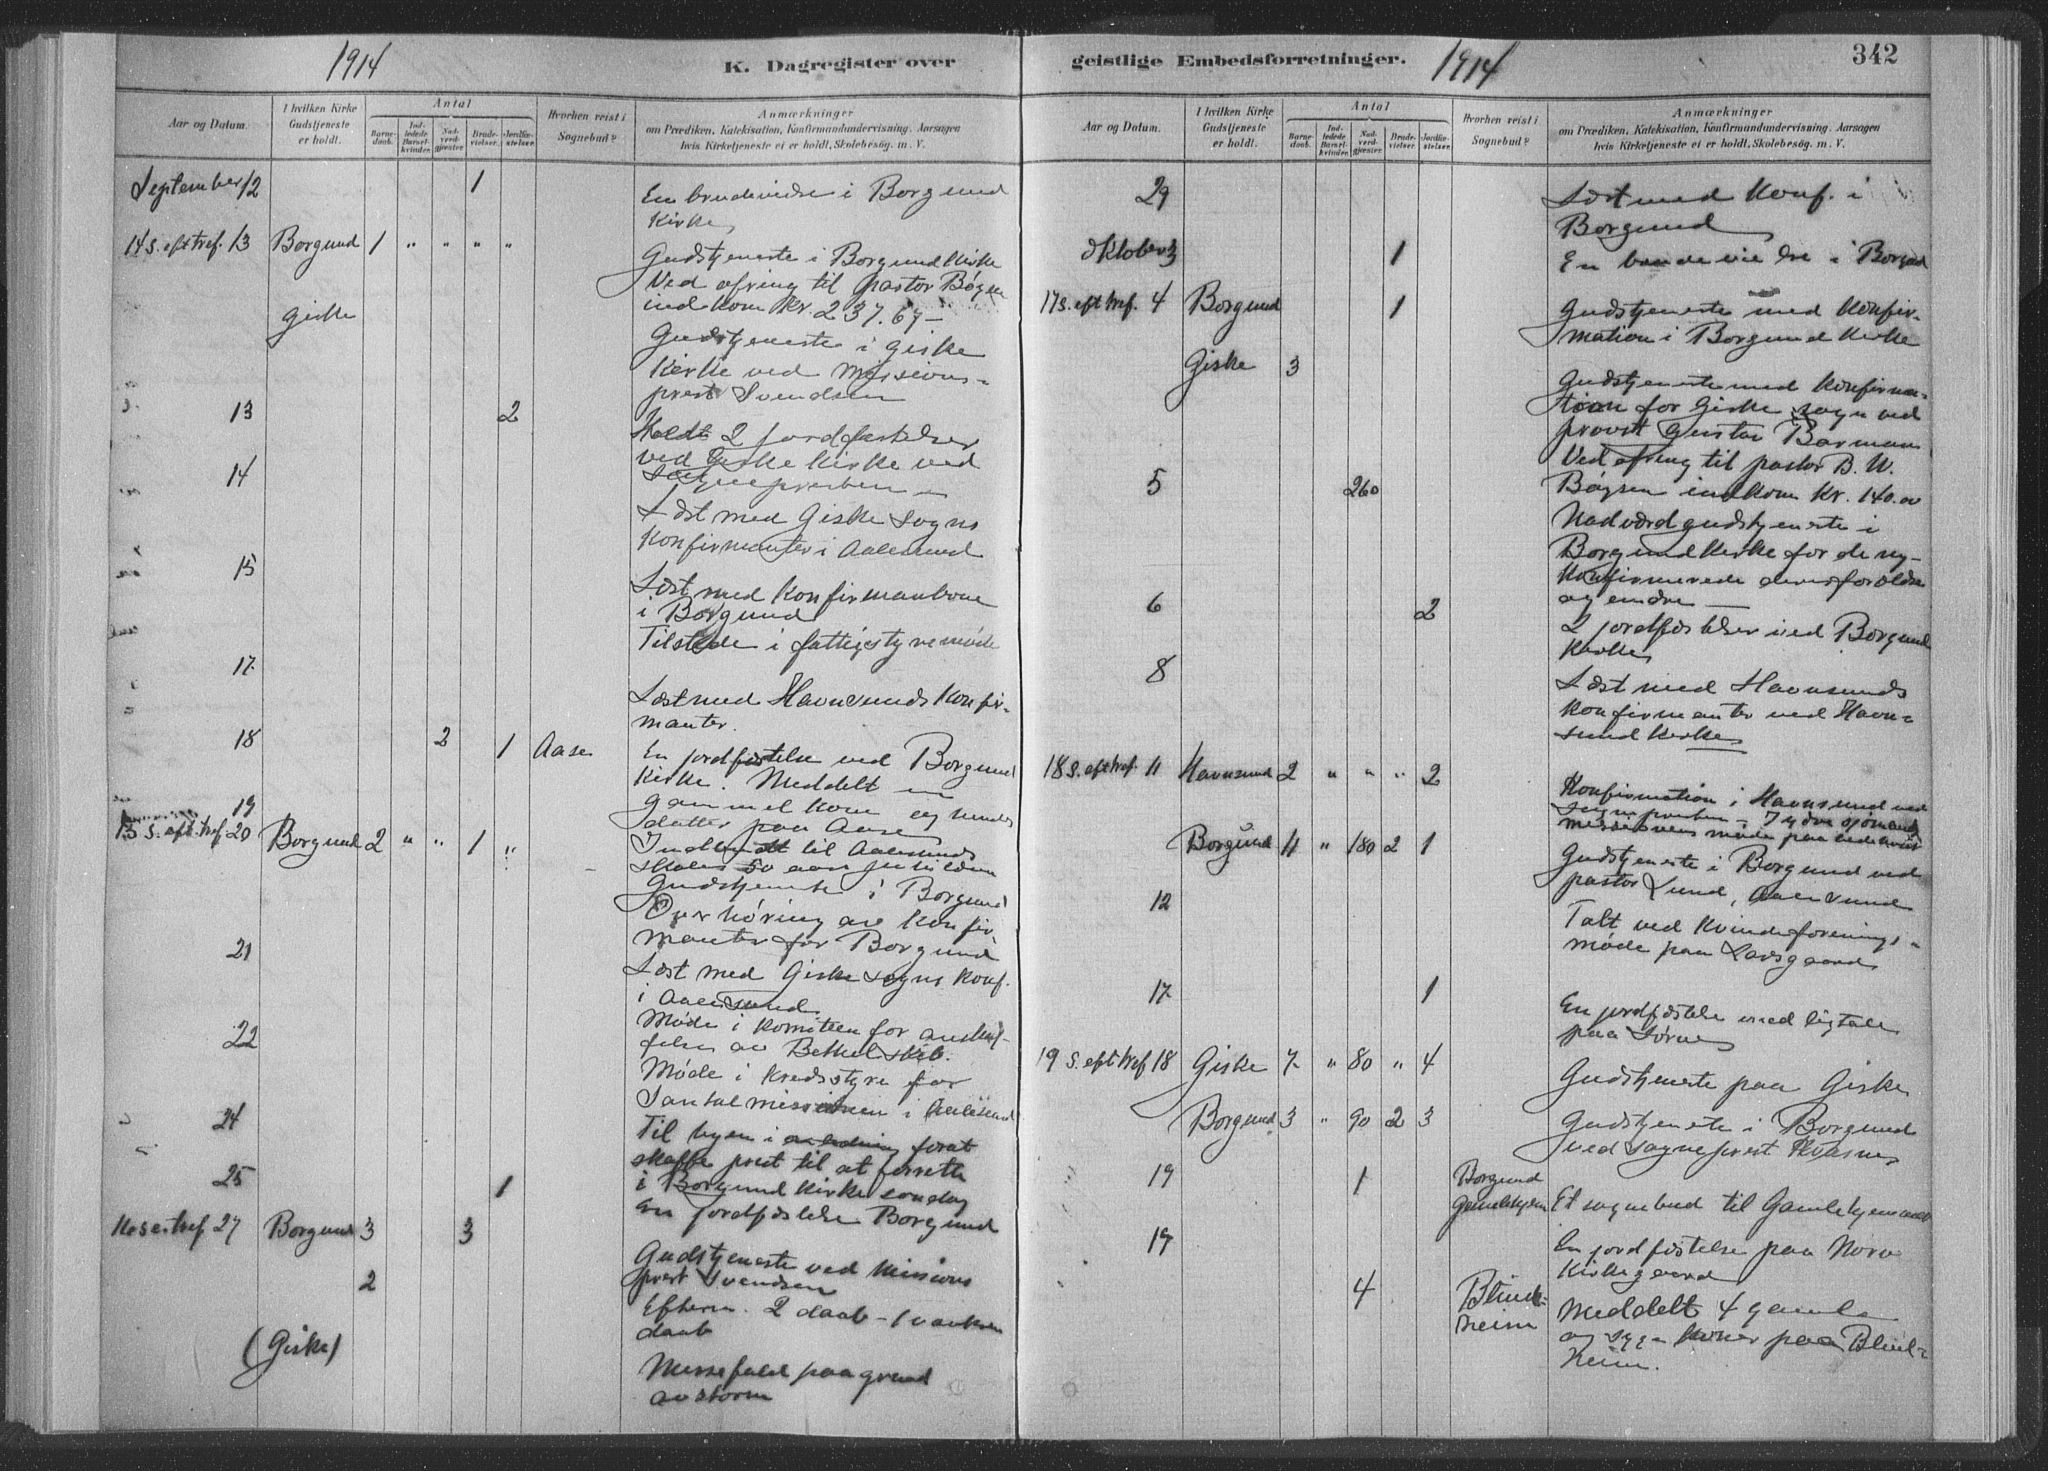 1914
K. Dagregister over
Aar og Datum.
I hvilken Kirke Gudstjeneste er holdt.
Antal
Barnedaab.
Indledede Barselkvinder.
Nadverdgjæster.
Brudevielser.
Jordfæstelser.
Hvorhen reist i Sognebud?
Anmærkninger
om Prædiken, Katekisation, Konfirmandundervisning. Aarsagen
hvis Kirketjeneste ei er holdt, Skolebesøg. m. V.
September 12 1 En brudevielse i Borgund
Kirke
14 S. eft tref. 13 Borgund 1 " " " " Gudstjeneste i Borgund Kirke
Ved ofring til pastor Bøgsen
indkom kr. 237.67 –
Giske Gudstjeneste i Giske
Kirke ved missions-
prest Svendsen
13 2 Holdt 2 jordfæstelser
ved Giske kirke ved
sognepresten –
14 Læst med Giske Sogns
Konfirmanter i Aalesund
15 Læst med Konfirmantene
i Borgund
Tilstede i fattigstyremøde
17 Læst med Havnsunds Konfir-
manter.
18 2 1 Aase En jordfæstelse ved Borgund
Kirke. Meddelt en
gammel Kone og hendes
datter paa Aase
19 Indbudt til Aalesunds
skoles 50 aars jubilæum
15 S. eft. tref. 20 Borgund 2 " " 1 " Gudstjeneste i Borgund
Overhøring av Konfir
manter for Borgund
21 Læst med Giske Sogns Konf.
i Aalesund
22 Møde i Komiteen for anskaf-
felse av Bethelskib.
Møde i Kredsstyre for
Santalmissionen i Aalesund
24 Til byen i anledning forat
skaffe prest til at forrette
i Borgund kirke søndag
25 1 En jordfæstelse Borgund
16 s e. tref 27 Borgund 3 3 Gudstjeneste ved Missions
prest Svendsen
2 Efterm. 2 daab – 1 voksen
daab
(Giske) Messefald paa grund
av storm
geistlige Embedsforretninger.
1914
342
Aar og Datum.
I hvilken Kirke Gudstjeneste er holdt.
Antal
Barnedaab.
Indledede Barselkvinder.
Nadverdgjæster.
Brudevielser.
Jordfæstelser.
Hvorhen reist i Sognebud?
Anmærkninger
om Prædiken, Katekisation, Konfirmandundervisning. Aarsagen
hvis Kirketjeneste ei er holdt, Skolebesøg. m. V.
29 Læst med Konf. i
Borgund
Oktober 3 1 En brudevielse i Borgund
17 s. eft tref. 4 Borgund 1 Gudstjeneste med Konfir-
mation i Borgund Kirke
Giske 3 Gudstjeneste med Konfirma-
tion for Giske sogn ved
provst Gustav Barman
Ved ofring til pastor B. W.
Bøgsen indkom kr. 140.00
5 260 Nadværdgudstjeneste i
Borgund Kirke for de ny-
konfirmerede deres forældre
og andre –
6 2 2 jordfæstelser ved Borgund
Kirke
8 Læst med Havnsunds
Konfirmanter ved Havn-
sund Kirke
18 S. eft tref. 11 Havnsund 2 " " " 2 Konfirmation i Havnsund ved
sognepresten –
Borgund 11 " 180 2 1 Gudstjeneste i Borgund ved
pastor Lund, Aalesund
12 Talt ved Kvindeforenings-
møde paa Larsgaard
17 1 En jordfæstelse med ligtale
paa Sørnes
19 S. eft tref 18 Giske 7 " 80 " 4 Gudstjeneste paa Giske
Borgund 3 " 90 2 3 Gudstjeneste i Borgund
ved sogneprest Kvasnes
19 1 Borgund Gamlehjem Et sognebud til Gamlehjemmet
19 En jordfæstelse paa Nørve
Kirkegaard
4 Blind-
heim Meddelt 4 gamle
og syge koner paa Blind-
heim.